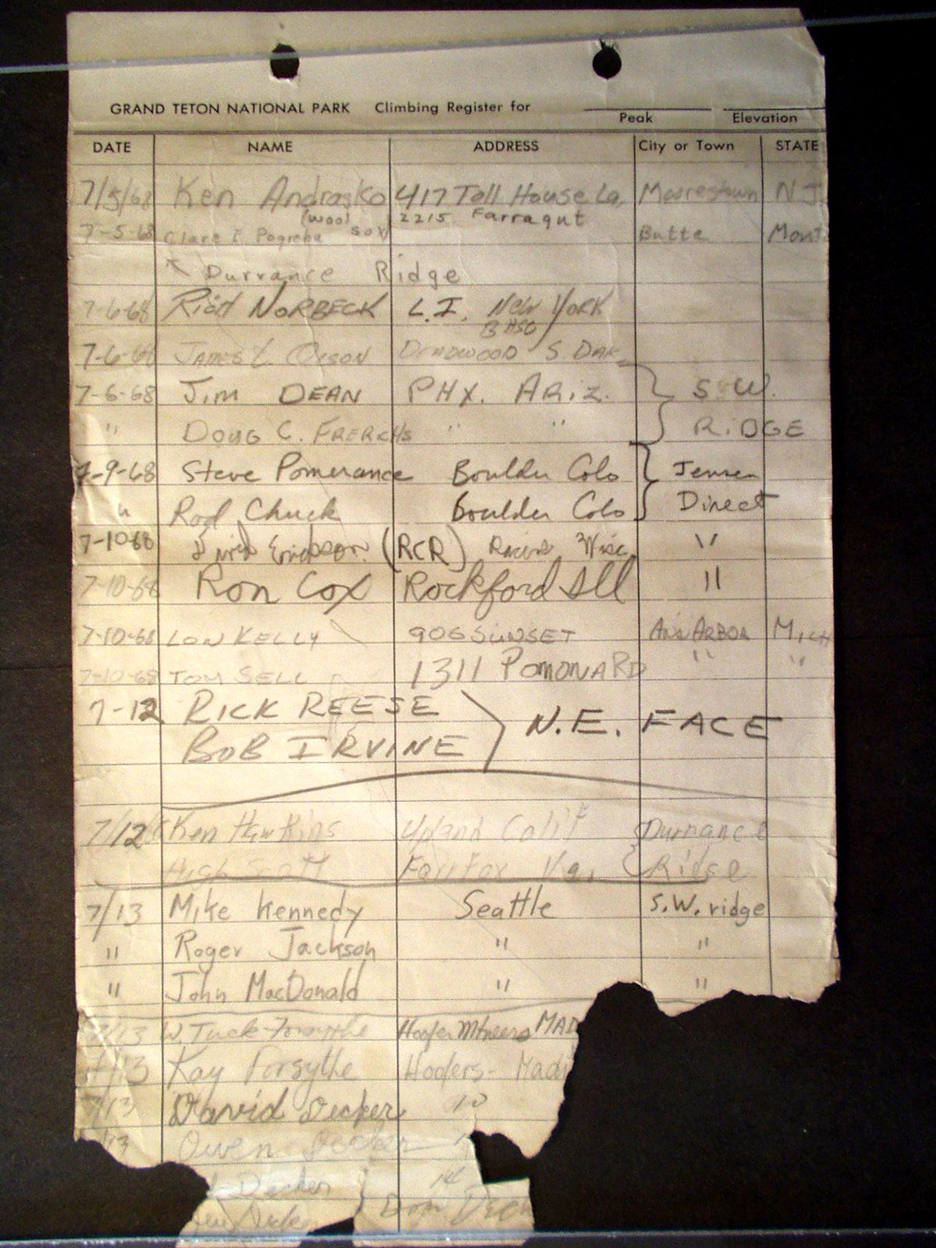 GRAND TETON NATIONAL PARK Climbing Register for
Peak Elevation
DATE NAME ADDRESS City or Town STATE
7/5/68 Ken Andrasko 417 Toll House La, Moorestown NJ
(wool sox) 2215 Farragut
7-5-68 Clare E Pogreba Butte Mont
↖ Durrance Ridge
7-6-68 Rich NORBECK L.I. NEW YORK
7-6-68 JAMES L OLSON DEADWOOD S. DAK.
7-6-68 Jim DEAN PHX. ARIZ. } S.W.
" DOUG C. FRERCHS " " } RIDGE
7-9-68 Steve Pomerance Boulder Colo } Jensen
" Rod Chuck Boulder Colo } Direct
7-10-68 David Erickson (RCR) Racine Wisc "
7-10-68 Ron Cox Rockford Ill "
7-10-68 LON KELLY 906 SUNSET ANN ARBOR MICH
7-10-68 TOM SELL 1311 POMONA RD " "
7-12 RICK REESE
BOB IRVINE } N.E. FACE
7/12 Ken Hawkins Upland Calif { Durrance
Hugh Scott Fairfax Va. { Ridge
7/13 Mike Kennedy Seattle S.W. ridge
" Roger Jackson " "
" John MacDonald " "
7/13 W. Tuck Forsythe Hoofer Mtneers MAD
7/13 Kay Forsythe Hoofers - Madi
7/13 David Decker "
13 Owen Decker
Decker
Don Deck